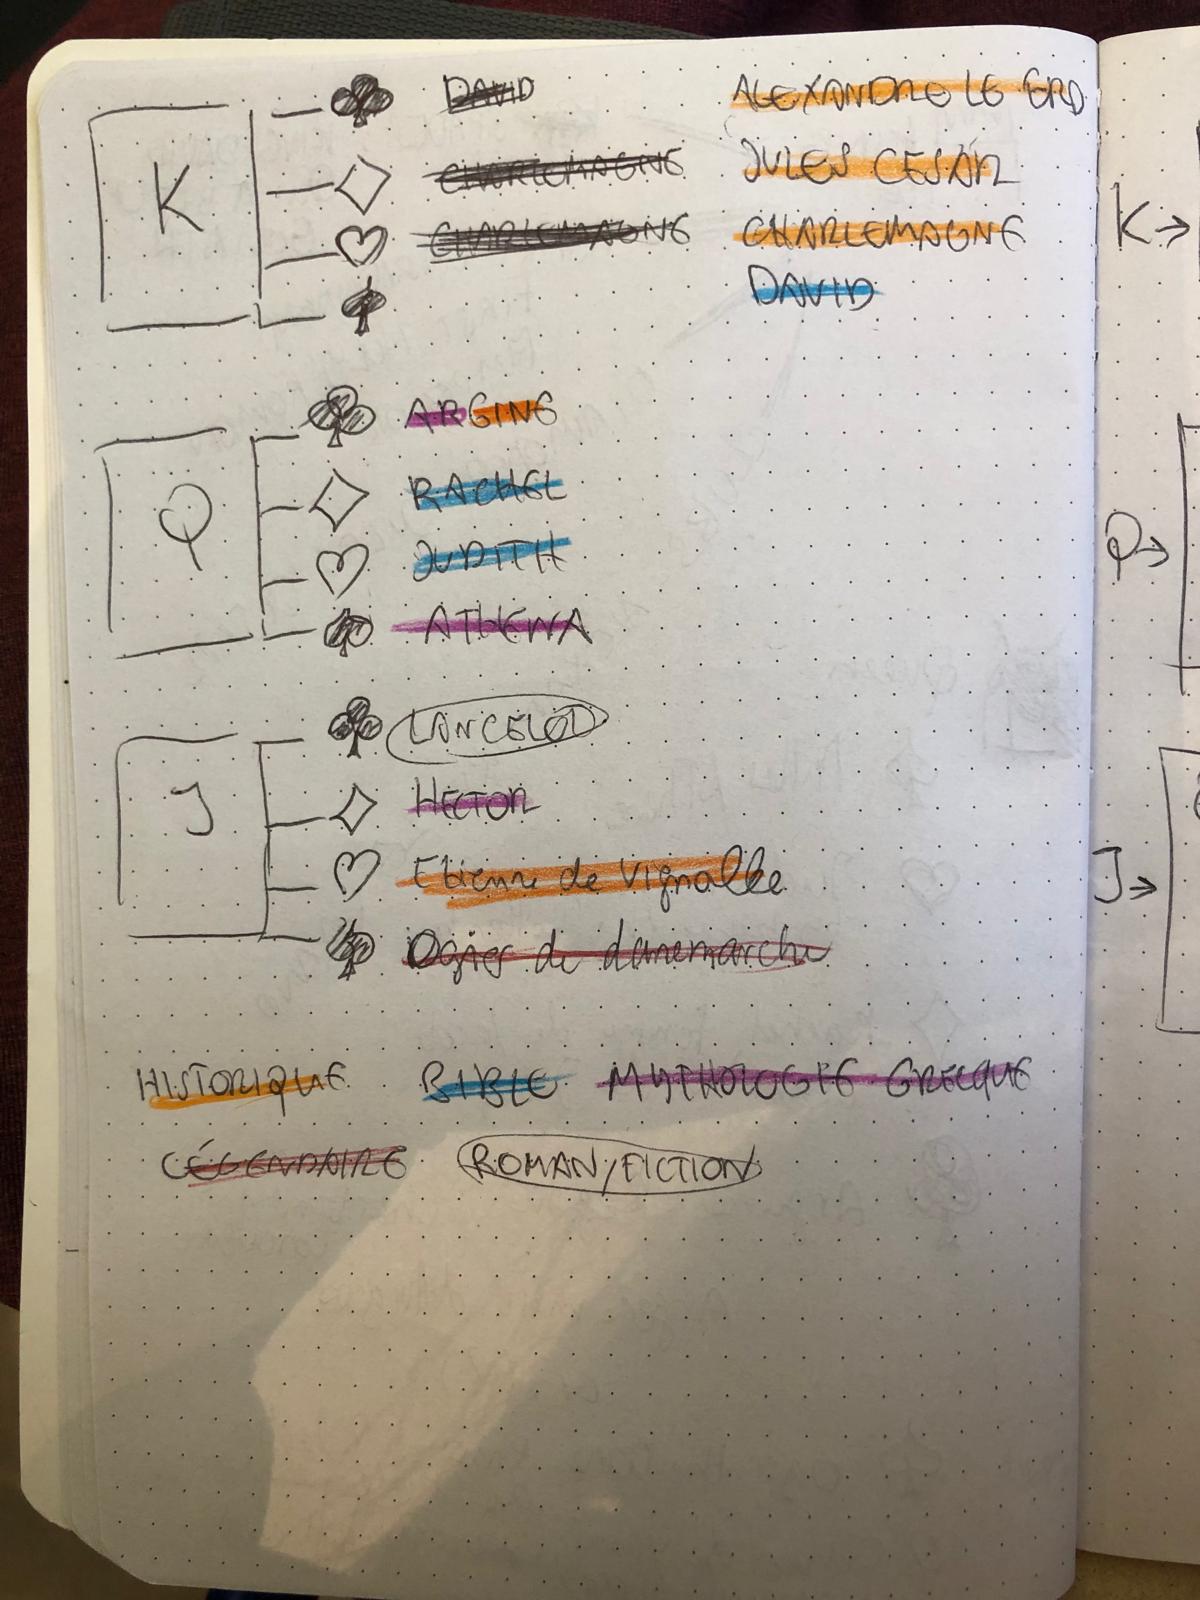 K
♣ DAVID ALEXANDRE LE GRD
♢ CHARLEMAGNE JULES CESAR
♡ CHARLEMAGNE CHARLEMAGNE
♠ DAVID
K→
Q
♣ ARGINE
♢ RACHEL
♡ JUDITH
♠ ATHENA
Q→
J
♣ LANCELOT
♢ HECTOR
♡ Etienne de Vignolle
♠ Ogier de danemarche
J→
HISTORIQUE BIBLE MYTHOLOGIE GRECQUE
LÉGENDAIRE ROMAN/FICTION